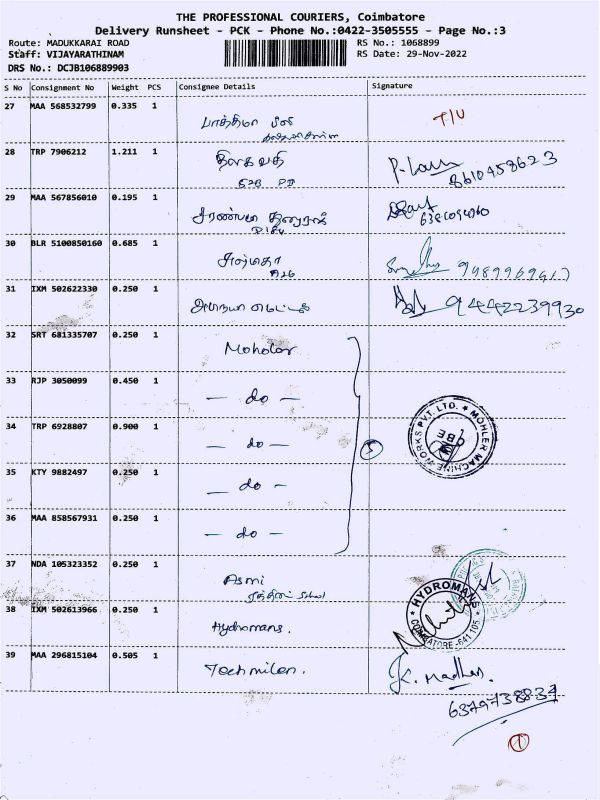 THE PROFESSIONAL COURIERS, Coimbatore
Delivery Runsheet - PCK - Phone No.:0422-3505555 - Page No.:3
Route: MADUKKARAI ROAD RS No.: 1068899
Staff: VIJAYARATHINAM RS Date: 29-Nov-2022
DRS No.: DCJB106889903
S No Consignment No Weight PCS Consignee Details Signature
27 MAA 568532799 0.335 1 பாத்திமா பீவி T/U
28 TRP 7906212 1.211 1 திலகவதி 8610458623
29 MAA 567856010 0.195 1
30 BLR 5100850160 0.685 1
31 IXM 502622330 0.250 1 9442239930
32 SRT 681335707 0.250 1 Moholar
33 RJP 3050099 0.450 1 - do -
34 TRP 6928807 0.900 1 - do -
5
MOHLER MACHINE WORKS PVT. LTD.
CBE
35 KTY 9882497 0.250 1 - do -
36 MAA 858567931 0.250 1 - do -
37 NDA 105323352 0.250 1 Asmi
38 IXM 502613966 0.250 1 Hydromans.
HYDROMANS
COIMBATORE-641 105
39 MAA 296815104 0.505 1 Techmilan. K. Madhan.
6379738837
1